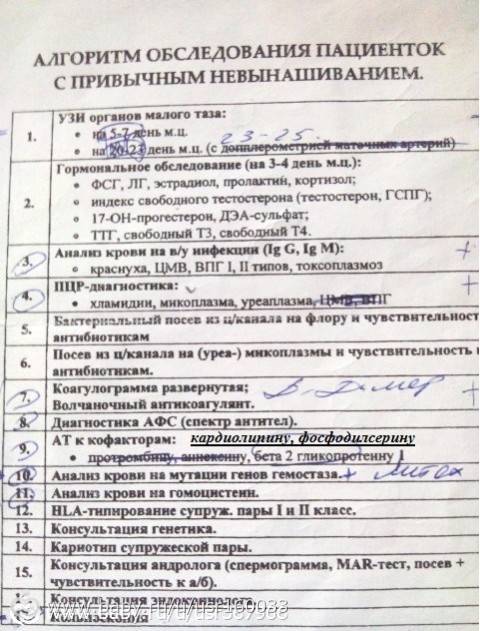 АЛГОРИТМ ОБСЛЕДОВАНИЯ ПАЦИЕНТОК
С ПРИВЫЧНЫМ НЕВЫНАШИВАНИЕМ.
1. УЗИ органов малого таза:
• на 5-7 день м.ц. 23-25.
• на 20-23 день м.ц. (с допплерометрией маточных артерий)
2. Гормональное обследование (на 3-4 день м.ц.):
• ФСГ, ЛГ, эстрадиол, пролактин, кортизол;
• индекс свободного тестостерона (тестостерон, ГСПГ);
• 17-ОН-прогестерон, ДЭА-сульфат;
• ТТГ, свободный Т3, свободный Т4.
3. Анализ крови на в/у инфекции (Ig G, Ig M): +
• краснуха, ЦМВ, ВПГ I, II типов, токсоплазмоз
4. ПЦР-диагностика: +
• хламидии, микоплазма, уреаплазма, ЦМВ, ВПГ
5. Бактериальный посев из ц/канала на флору и чувствительност
антибиотикам
6. Посев из ц/канала на (уреа-) микоплазмы и чувствительность
антибиотикам.
7. Коагулограмма развернутая; Д-Димер +
Волчаночный антикоагулянт.
8. Диагностика АФС (спектр антител).
9. АТ к кофакторам: кардиолипину, фосфодилсерину
• протромбину, аннексину, бета 2 гликопротеину 1
10. Анализ крови на мутации генов гемостаза. +
11. Анализ крови на гомоцистеин.
12. HLA-типирование супруж. пары I и II класс.
13. Консультация генетика.
14. Кариотип супружеской пары.
15. Консультация андролога (спермограмма, MAR-тест, посев +
чувствительность к а/б).
Консультация эндокринолога.
Кольпоскопия